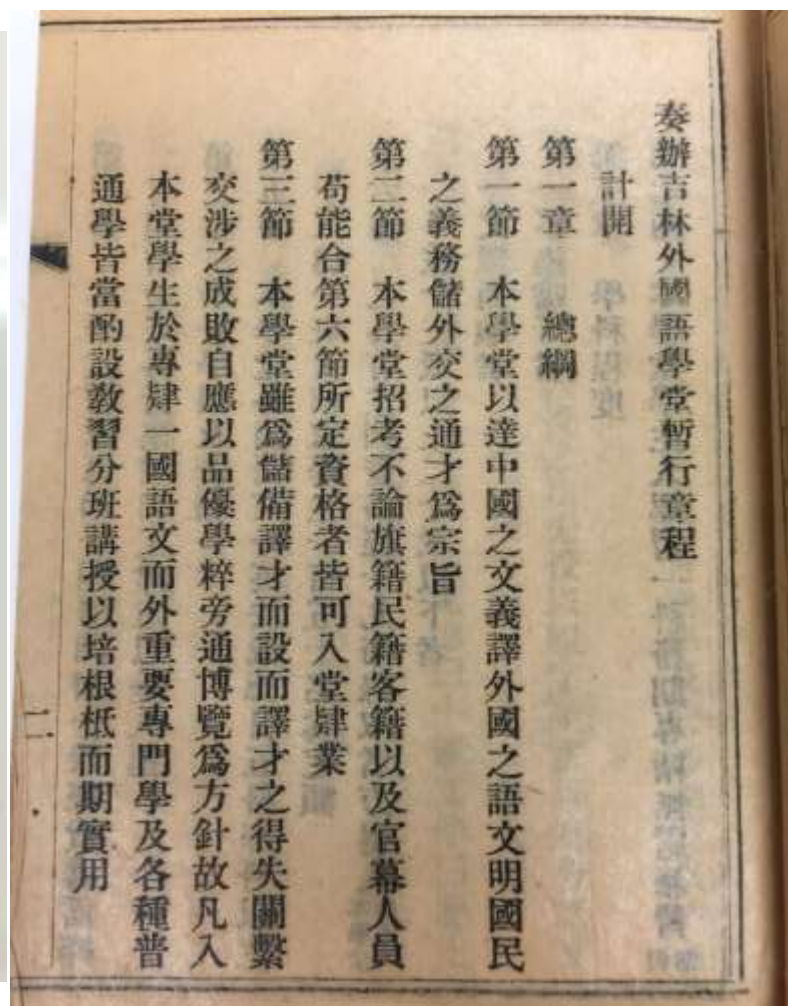 奏辦吉林外國語學堂暫行章程
計開
第一章　總綱
第一節　本學堂以達中國之文義譯外國之語文明國民
之義務儲外交之通才爲宗旨
第二節　本學堂招考不論旗籍民籍客籍以及官幕人員
苟能合第六節所定資格者皆可入堂肄業
第三節　本學堂雖爲儲備譯才而設而譯才之得失關繫
交涉之成敗自應以品優學粹旁通博覽爲方針故凡入
本堂學生於專肄一國語文而外重要專門學及各種普
通學皆當酌設敎習分班講授以培根柢而期實用
二